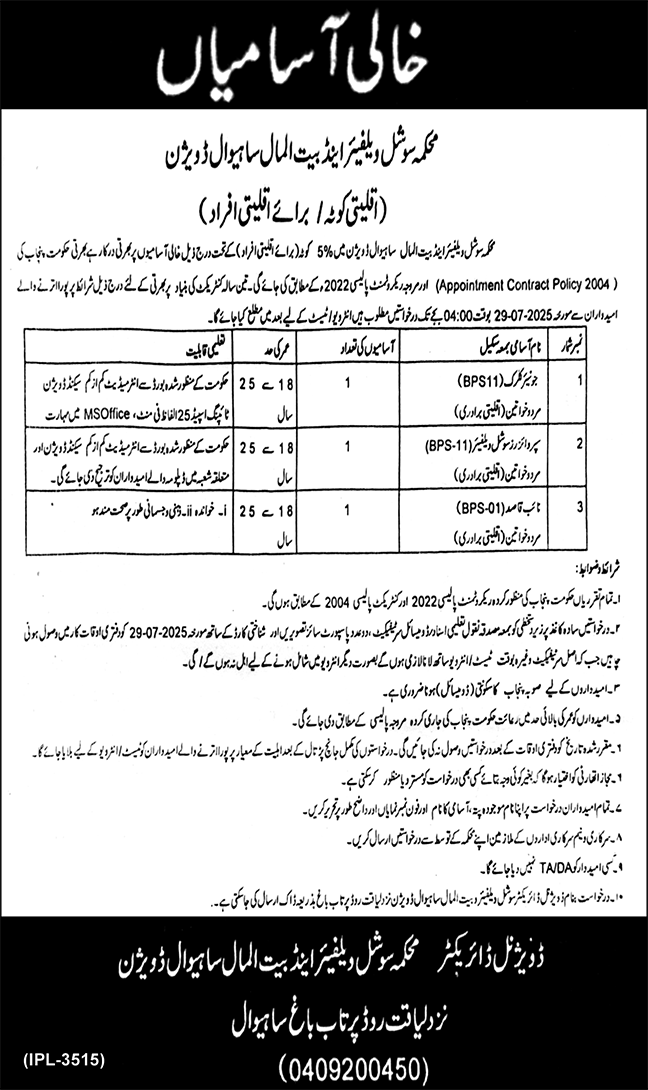 خالی آسامیاں
محکمہ سوشل ویلفیئر اینڈ بیت المال ساہیوال ڈویژن
(اقلیتی کوٹہ / برائے اقلیتی افراد)
محکمہ سوشل ویلفیئر اینڈ بیت المال ساہیوال ڈویژن میں %5 کوٹہ (برائے اقلیتی افراد) کے تحت درج ذیل خالی آسامیوں پر بھرتی درکار ہے بھرتی حکومت پنجاب کی
(Appointment Contract Policy 2004) اور مروجہ ریکروٹمنٹ پالیسی 2022ء کے مطابق کی جائے گی۔ تین سالہ کنٹریکٹ کی بنیاد پر بھرتی کے لئے درج ذیل شرائط پر پورا اترنے والے
امیدواران سے مورخہ 29-07-2025 بوقت 04:00 بجے تک درخواستیں مطلوب ہیں انٹرویو/ٹیسٹ کے لیے بعد میں مطلع کیا جائے گا۔
نمبر شمار نام آسامی بمعہ سکیل آسامیوں کی تعداد عمر کی حد تعلیمی قابلیت
1 جونیئر کلرک (BPS11) 1 18 سے 25 حکومت کے منظور شدہ بورڈ سے انٹرمیڈیٹ کم از کم سیکنڈ ڈویژن
مرد و خواتین (اقلیتی برادری) سال ٹائپنگ اسپیڈ 25 الفاظ فی منٹ، MSOffice میں مہارت
2 سپروائزر سوشل ویلفیئر (BPS-11) 1 18 سے 25 حکومت کے منظور شدہ بورڈ سے انٹرمیڈیٹ کم از کم سیکنڈ ڈویژن اور
مرد و خواتین (اقلیتی برادری) سال متعلقہ شعبہ میں ڈپلومہ والے امیدواران کو ترجیح دی جائے گی۔
3 نائب قاصد (BPS-01) 1 18 سے 25 i۔ خواندہ ii۔ ذہنی و جسمانی طور پر صحت مند ہو
مرد و خواتین (اقلیتی برادری) سال
شرائط و ضوابط:
۱۔ تمام تقرریاں حکومت پنجاب کی منظور کردہ ریکروٹمنٹ پالیسی 2022 اور کنٹریکٹ پالیسی 2004 کے مطابق ہوں گی۔
۲۔ درخواستیں سادہ کاغذ پر زیر دستخطی کو بمعہ مصدقہ نقول تعلیمی اسناد و ڈومیسائل سرٹیفکیٹ، دو عدد پاسپورٹ سائز تصویریں اور شناختی کارڈ کے ساتھ مورخہ 29-07-2025 کو دفتری اوقات کار میں وصول ہونی
چاہیں جب کہ اصل سرٹیفکیٹ وغیرہ بوقت ٹیسٹ / انٹرویو ساتھ لانا لازمی ہوں گے بصورت دیگر انٹرویو میں شامل ہونے کے لیے اہل نہ ہوں گے / گی۔
۳۔ امیدواروں کے لیے صوبہ پنجاب کا سکونتی (ڈومیسائل) ہونا ضروری ہے۔
۵۔ امیدواروں کو عمر کی بالائی حد میں رعائت حکومت پنجاب کی جاری کردہ مروجہ پالیسی کے مطابق دی جائے گی۔
۶۔ مقرر شدہ تاریخ کو دفتری اوقات کے بعد درخواستیں وصول نہ کی جائیں گی۔ درخواستوں کی مکمل جانچ پڑتال کے بعد اہلیت کے معیار پر پورا اترنے والے امیدواران کو ٹیسٹ / انٹرویو کے لیے بلایا جائے گا۔
۶۔ مجاز اتھارٹی کو اختیار ہوگا کہ بغیر کوئی وجہ بتائے کسی بھی درخواست کو مسترد یا منظور کر سکتی ہے۔
۷۔ تمام امیدواران درخواست پر اپنا نام موجودہ پتہ، آسامی کا نام اور فون نمبر نمایاں اور واضح طور پر تحریر کریں۔
۸۔ سرکاری و نیم سرکاری اداروں کے ملازمین اپنے محکمہ کے توسط سے درخواستیں ارسال کریں۔
۹۔ کسی امیدوار کو TA/DA نہیں دیا جائے گا۔
۱۰۔ درخواست بنام ڈویژنل ڈائریکٹر سوشل ویلفیئر و بیت المال ساہیوال ڈویژن نزد لیاقت روڈ پرتاب باغ بذریعہ ڈاک ارسال کی جا سکتی ہے۔
ڈویژنل ڈائریکٹر محکمہ سوشل ویلفیئر اینڈ بیت المال ساہیوال ڈویژن
نزد لیاقت روڈ پرتاب باغ ساہیوال
(0409200450)
(IPL-3515)